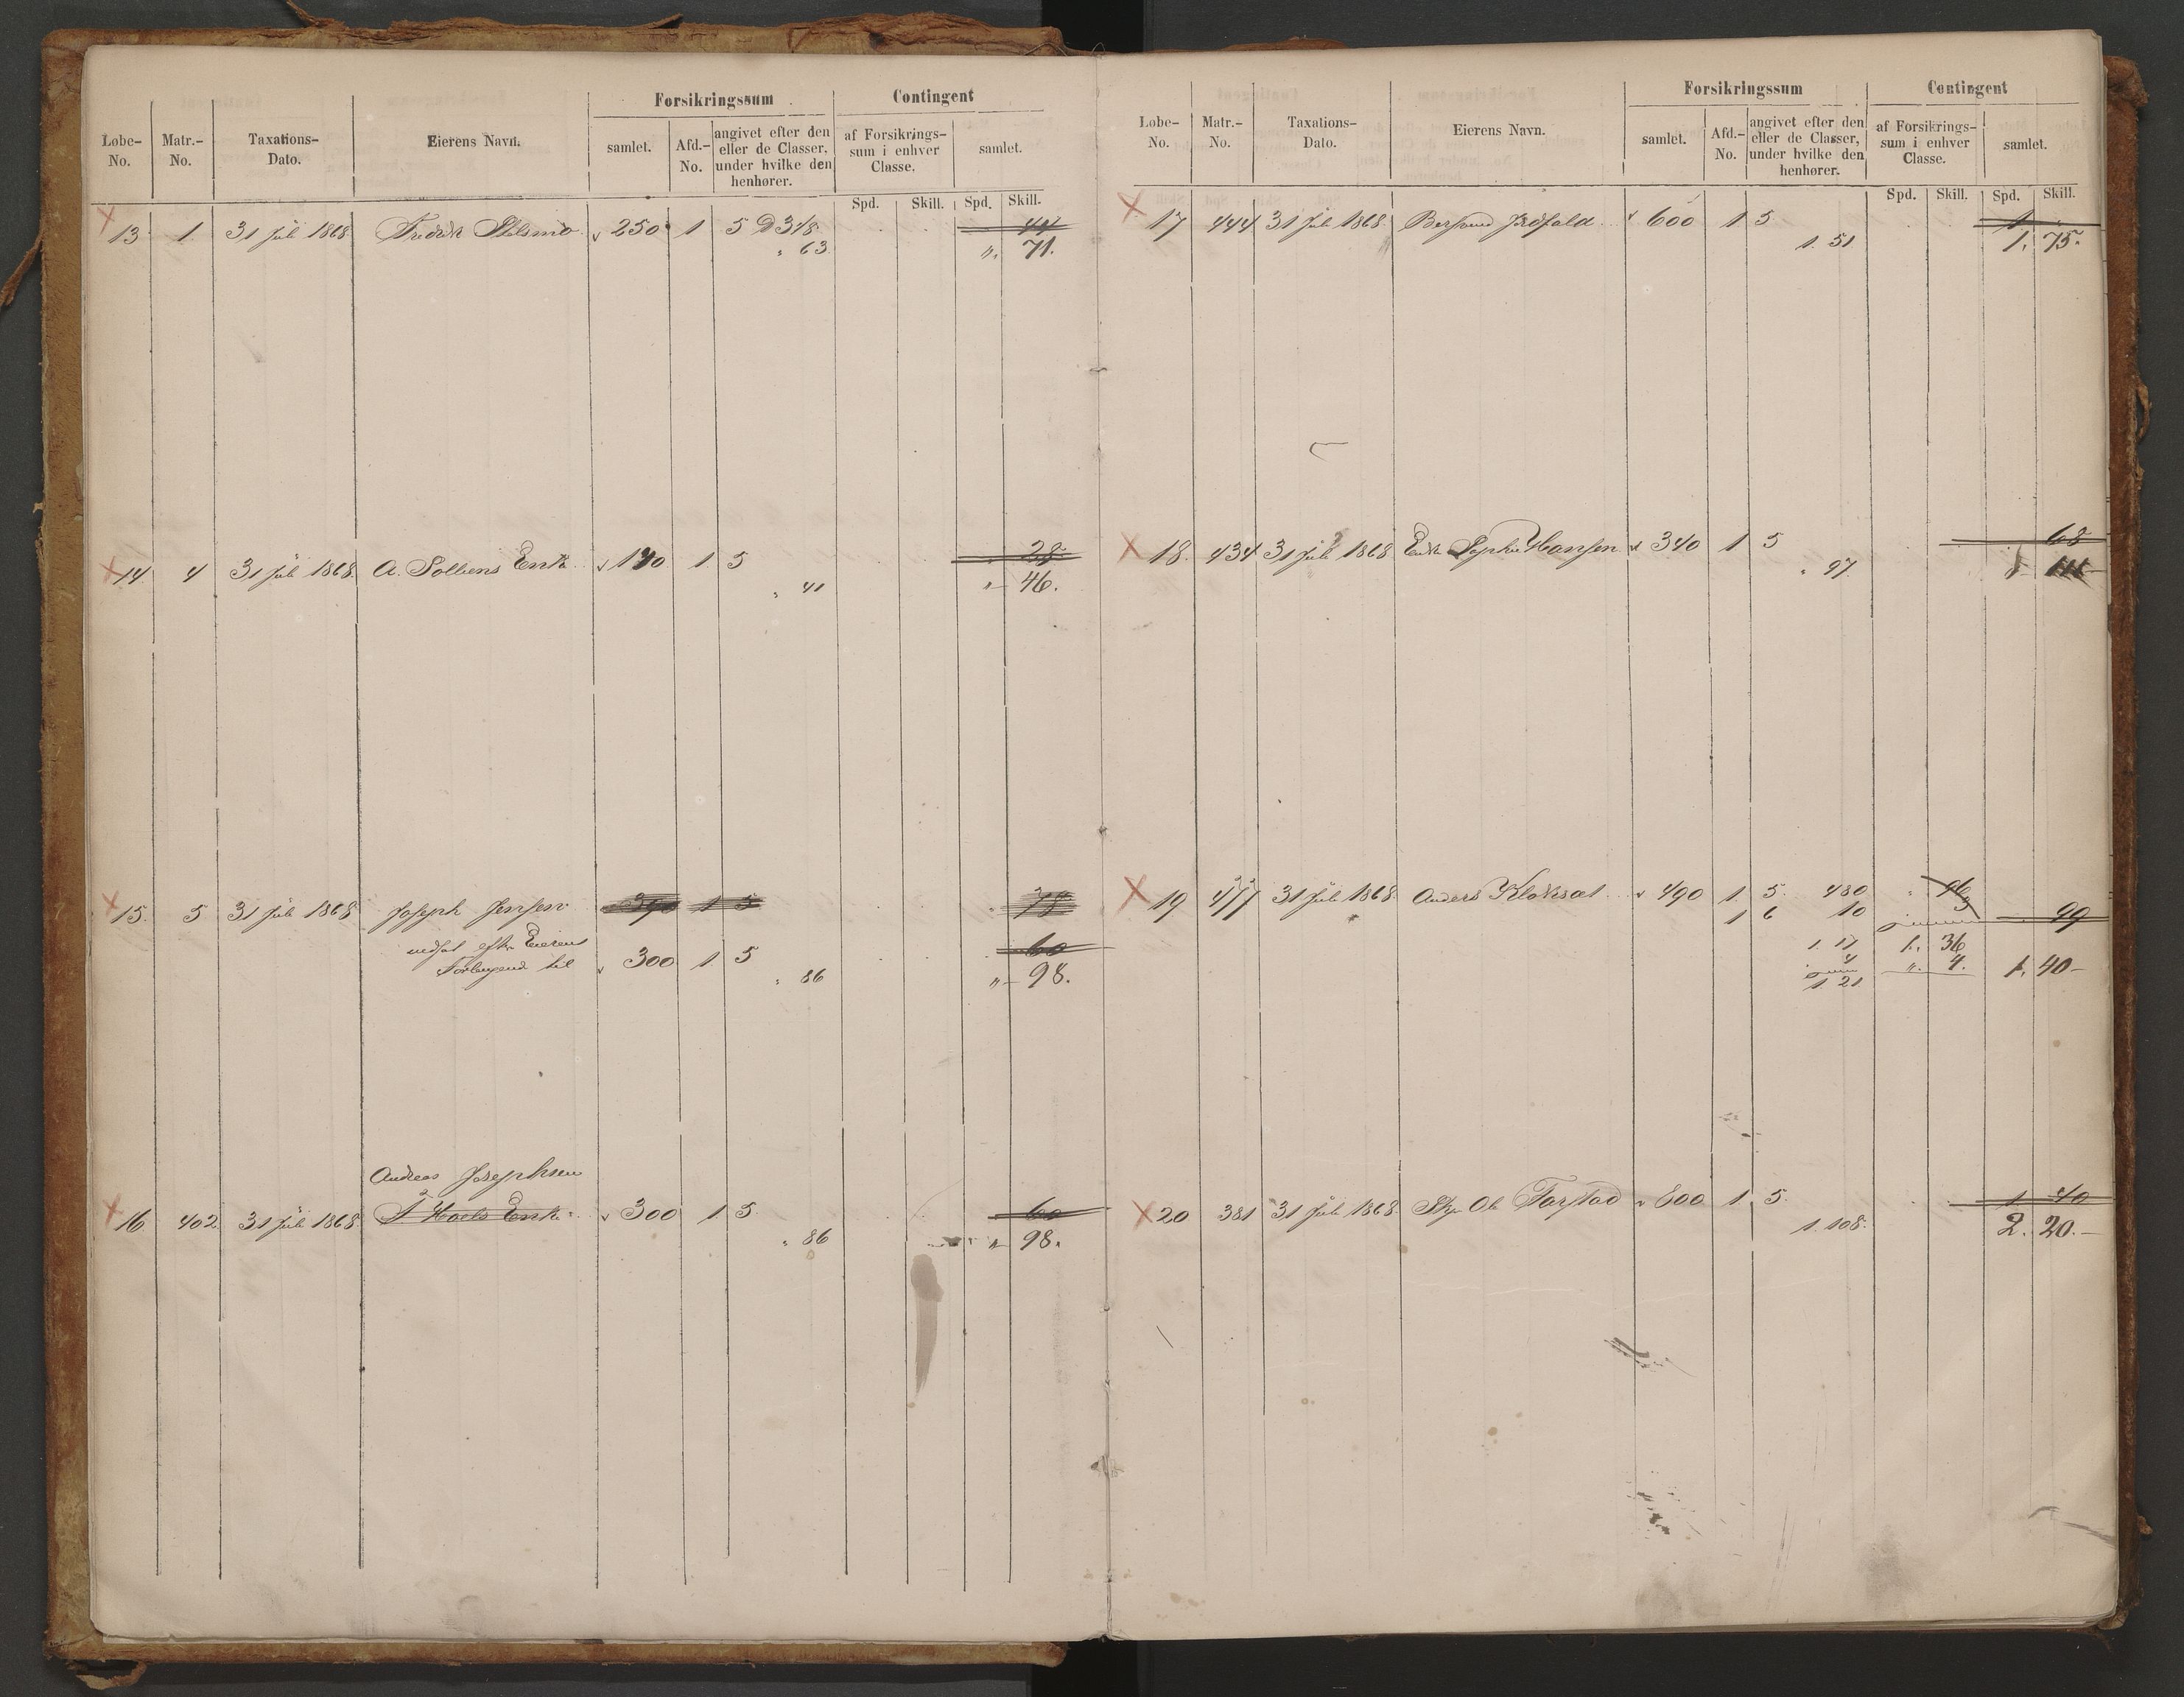 Forsikringssum Contingent
Løbe-No. Matr.-No. Taxations-Dato. Eierens Navn. samlet. Afd.-No. angivet efter den eller de Classer, under hvilke den henhører. af Forsikrings-sum i enhver Classe. samlet.
Spd. Skill. Spd. Skill.
13 1. 31 Juli 1868 Fredrik 250 1 5 44
" 63 " 71.
14 4 31 Juli 1868 A. Solliens Enke 140 1 5 28
" 41 " 46.
15. 5 31 Juli 1868 Joseph Jensen 390 1 5 78
nedsat efter Eierens 60
Forlangend til 300 1 5
" 86 " 98.
Andreas Josephsen
16 402 31 Juli 1868 Hoels Enke 300 1 5 60
" 86 " 98.
Forsikringssum Contingent
Løbe-No. Matr.-No. Taxations-Dato. Eierens Navn. samlet. Afd.-No. angivet efter den eller de Classer, under hvilke den henhører. af Forsikrings-sum i enhver Classe. samlet.
Spd. Skill. Spd. Skill.
17 444 31 Juli 1868 600 1 5 1
1. 51 1. 75.
18. 434 31 Juli 1868 Enke Sophie Hansen 340 1 5 68
" 97
19 31 Juli 1868 Anders Kloksæt 490 1 5. 480 " 96
1 6 10 3 99
1. 17 1. 36
4 " 4. 1. 40
1 21
20 381 31 Juli 1868 Ole Farstad 800 1 5. 1 40
1. 108. 2. 20.